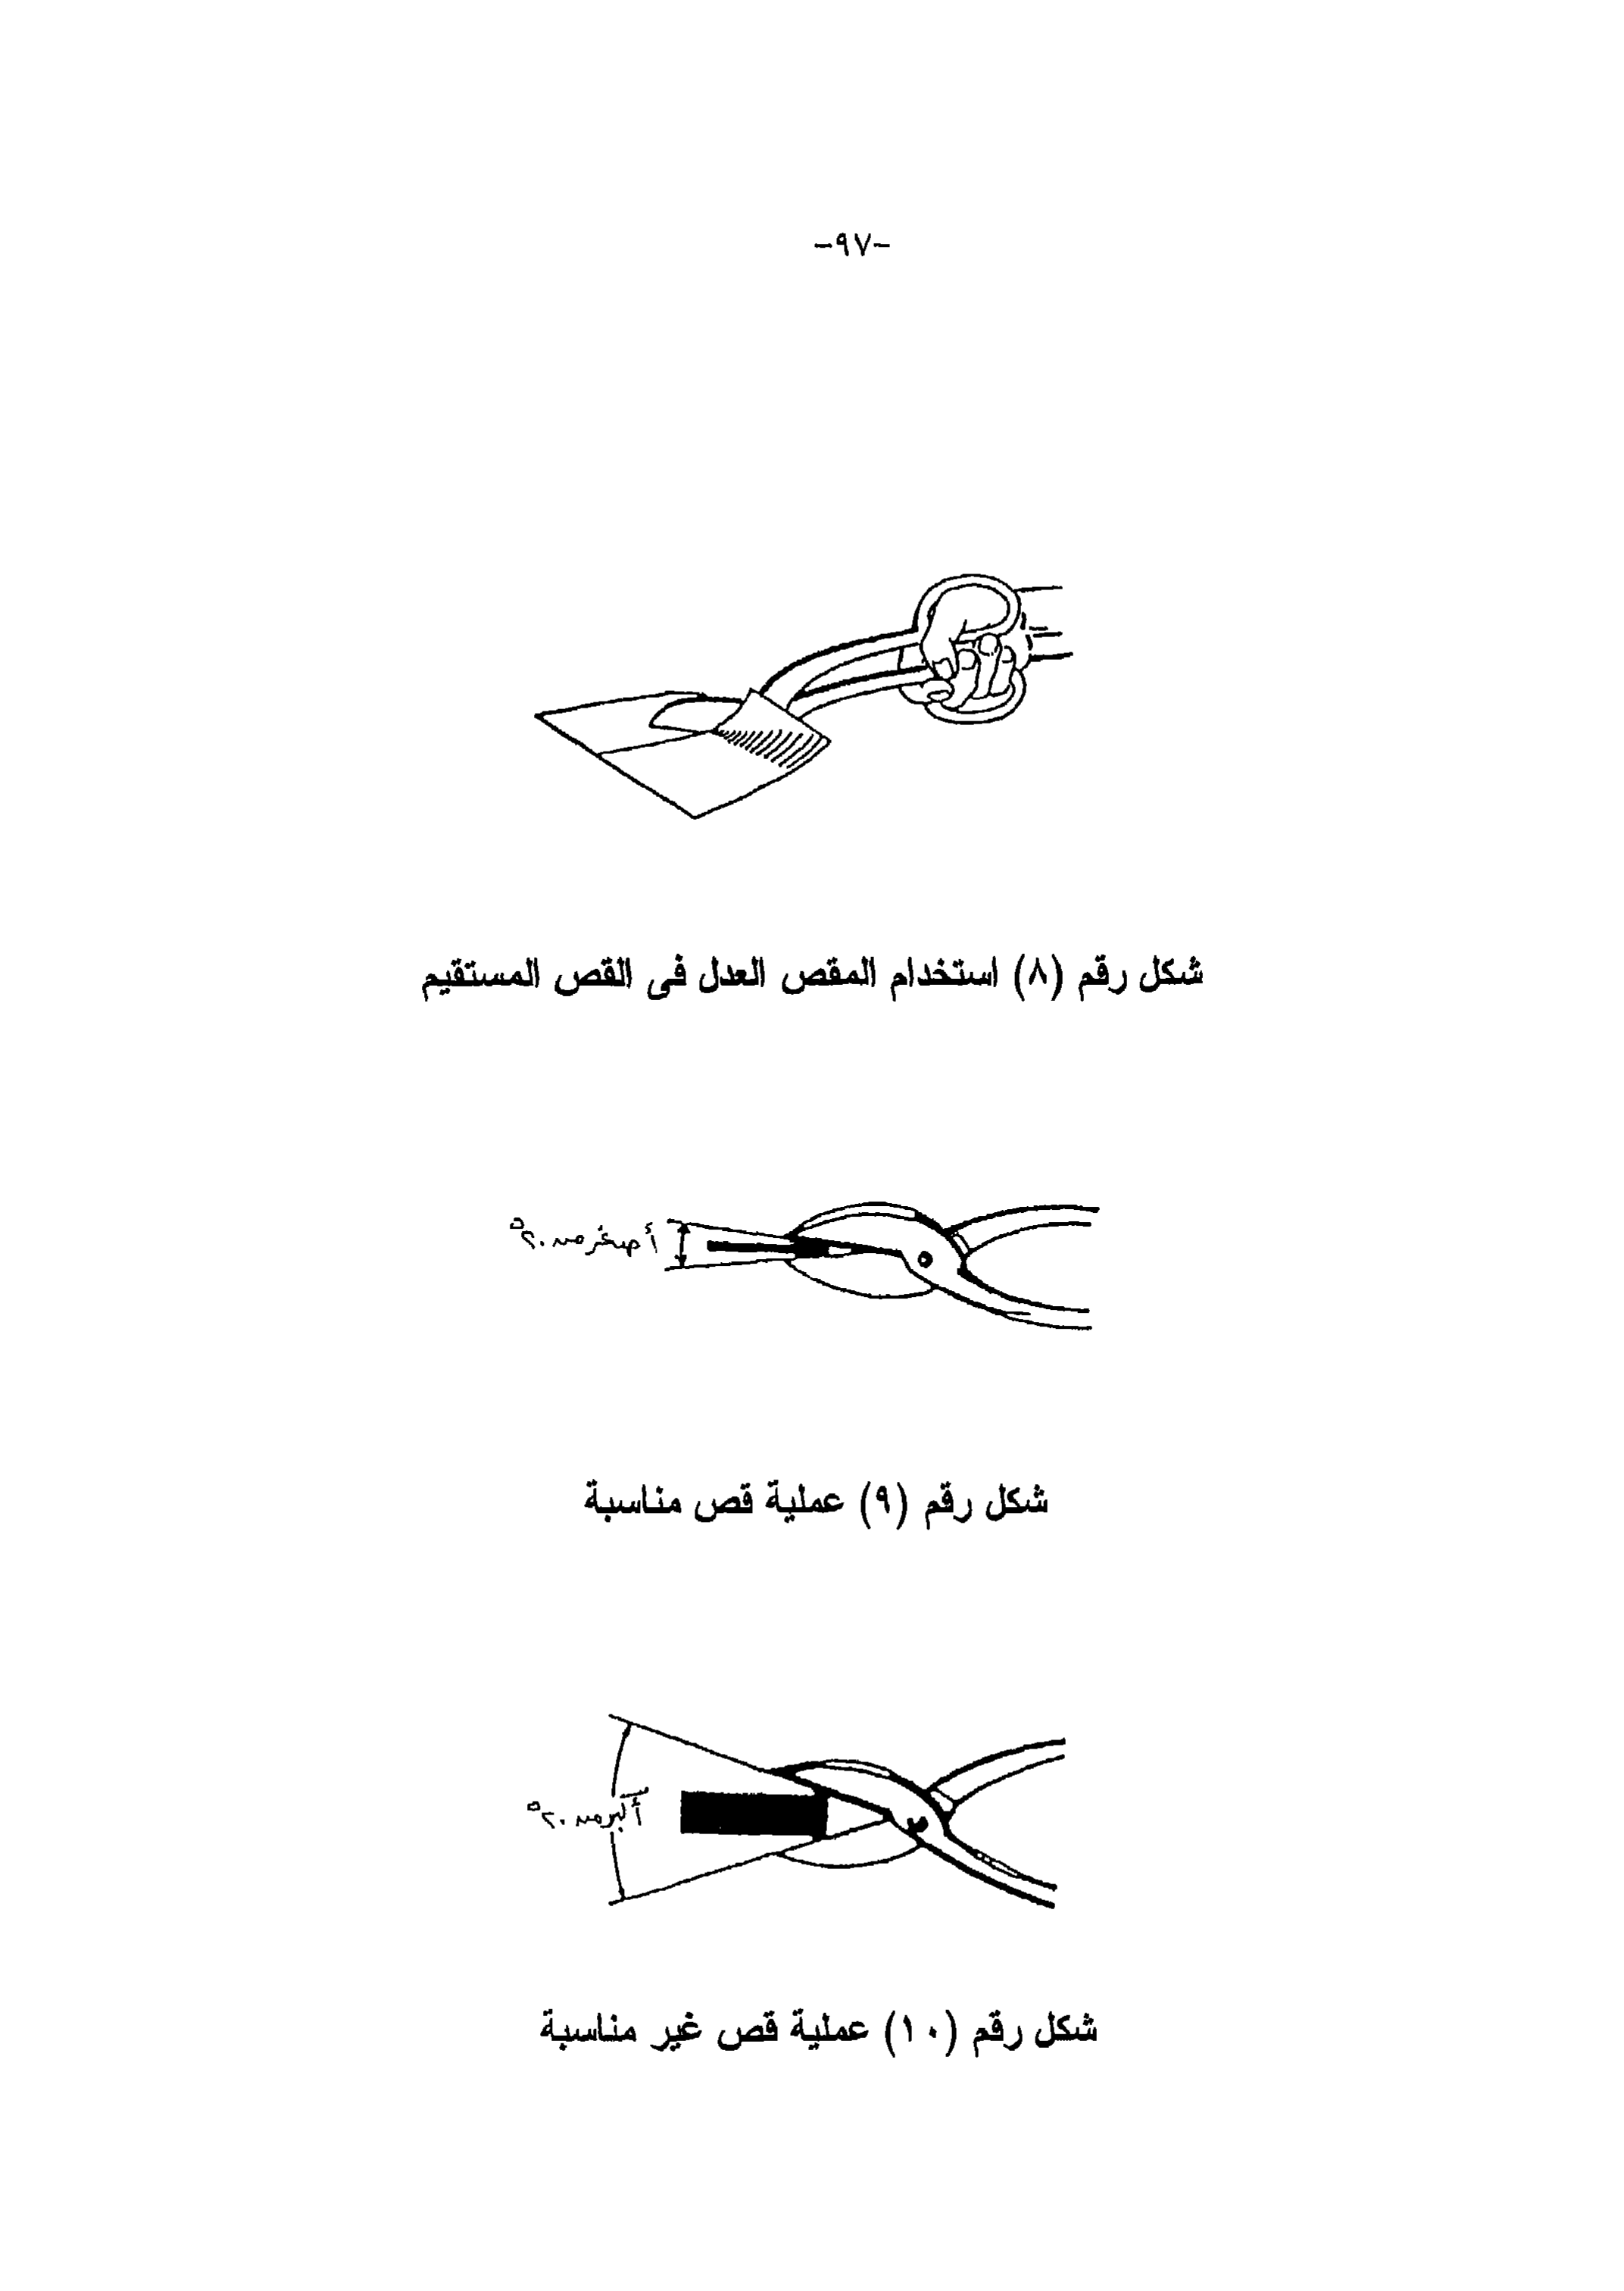 -٩٧-
شكل رقم (٨) استخدام المقص العدل فى القص المستقيم
أصغر من ٢٠°
شكل رقم (٩) عملية قص مناسبة
أكبر من ٢٠°
شكل رقم (١٠) عملية قص غير مناسبة